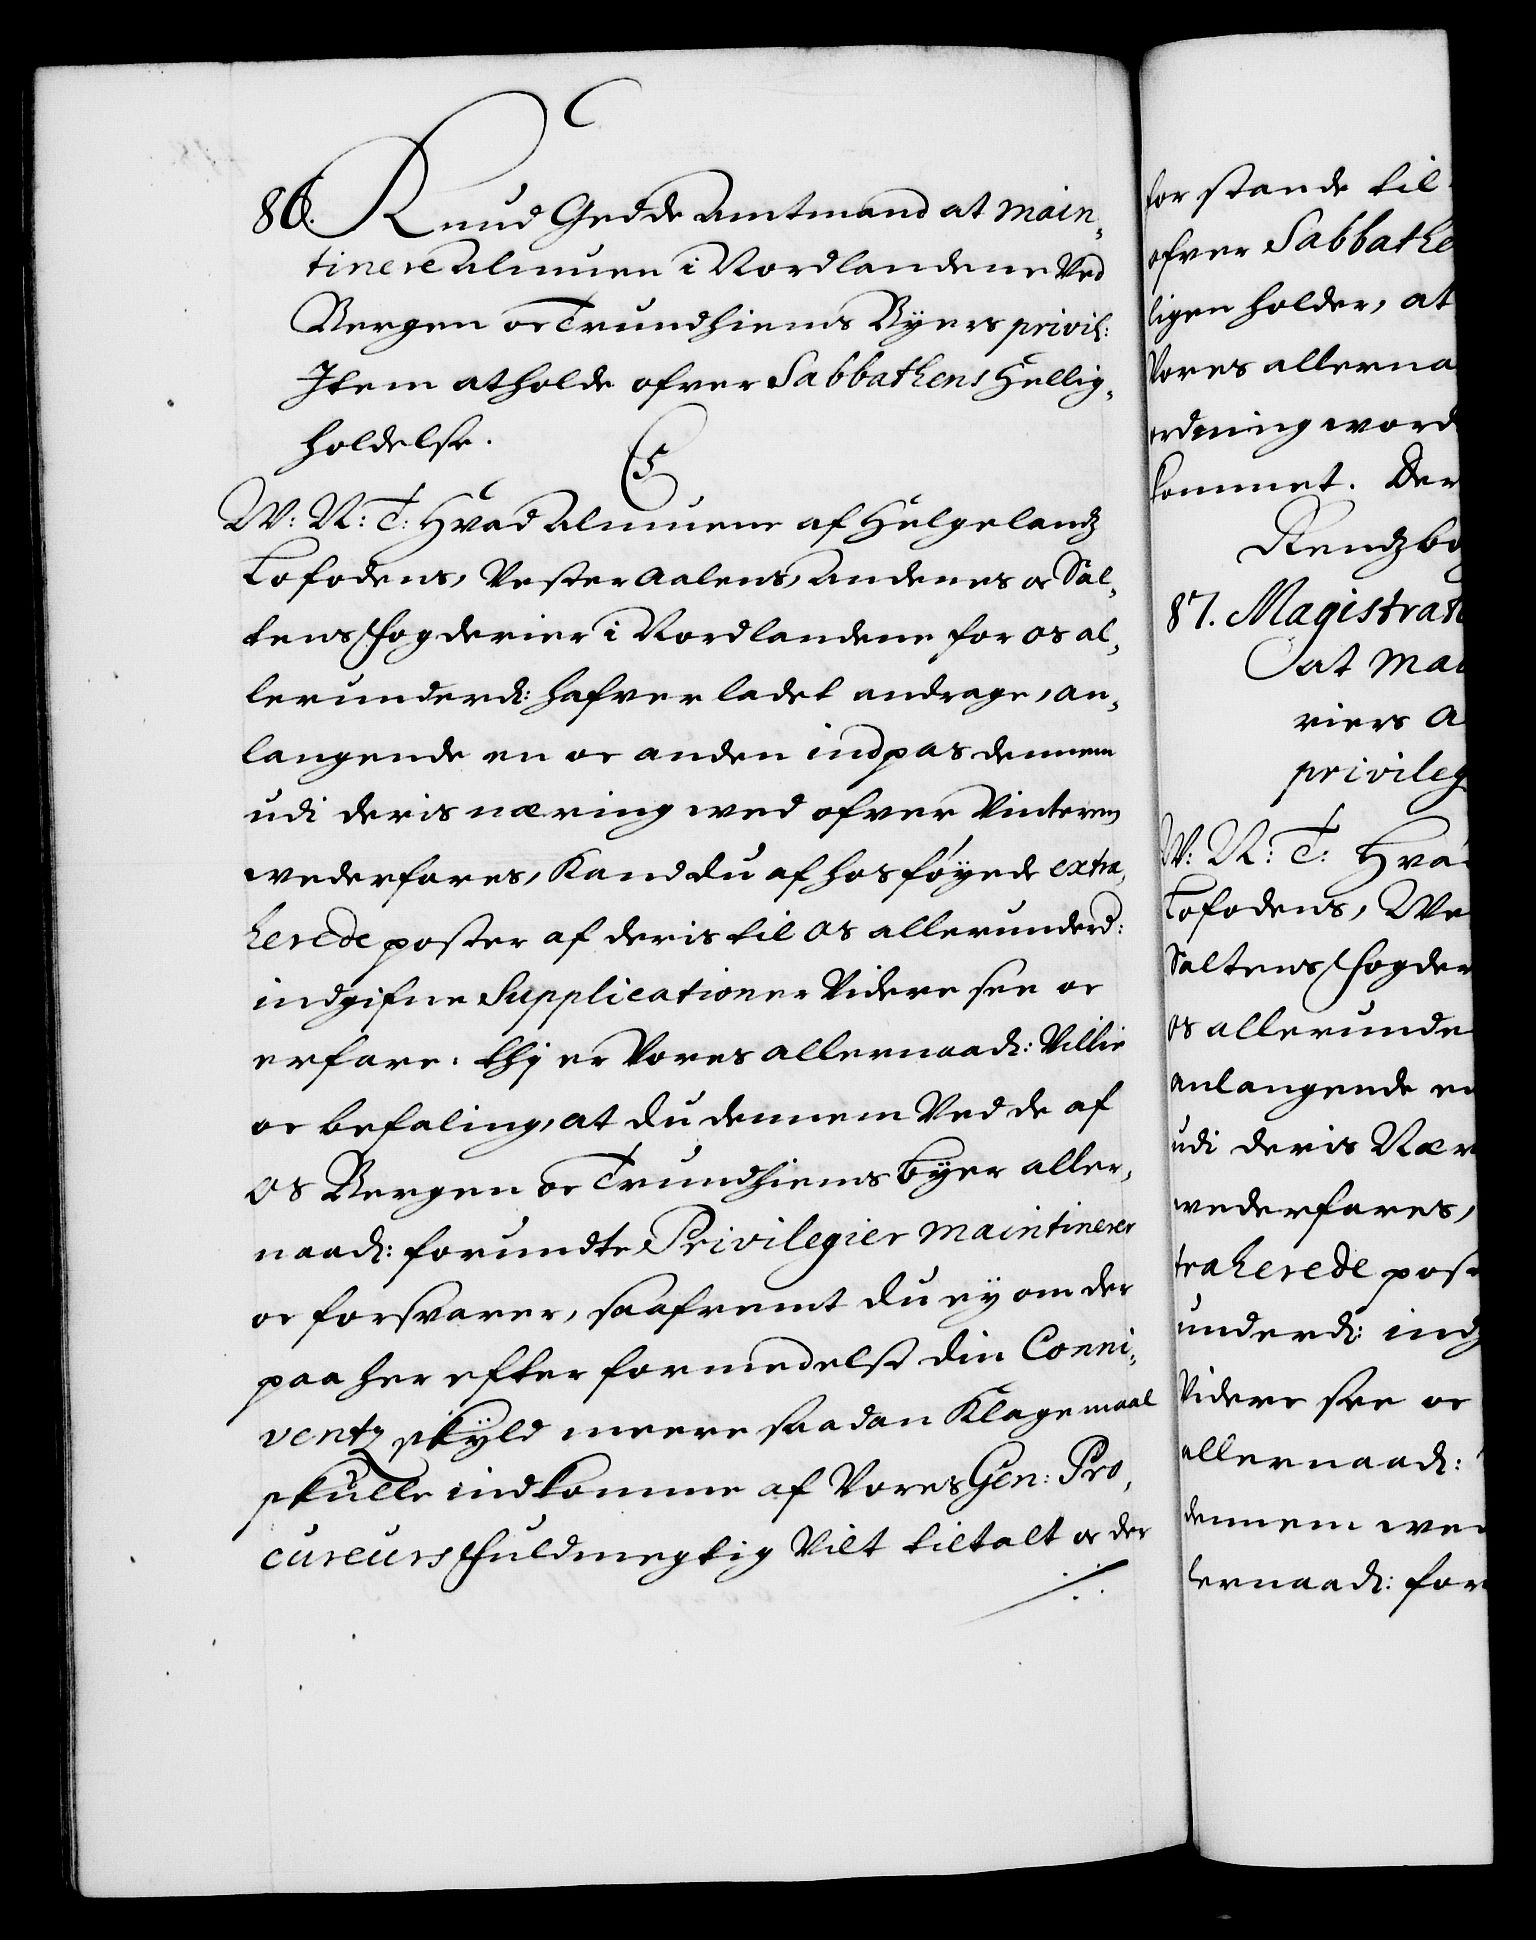 86. Knud Gedde Amtmand at main„
tinere Almuen i Nordlandene Ved
Bergen oc Trundhiems Byers privil:
Item at holde ofver Sabbathens Hellig„
holdelse.
C5
W: N: T: Hvad Almuene af Helgelandz
Lofodens, Vester Aalens, Andenes oc Sal„
tens Fogderier i Nordlandene for os al„
lerunderd: hafver ladet andrage, an„
langende en oc anden indpas dennem
udi deris næring wed ofver Vinteren
wederfares, Kand du af hosføyede extra„
herede poster af deris til os allerunderd:
indgifne Supplicationer Videre see oc
erfare. thj er Vores allernaad: Villie
oc befaling, at du dennem Ved de af
os Bergen oc Trundhiems byer aller„
naad: forundte Privilegier maintinerer
oc forsvarer, saafremt du ey om der
paa her efter formedelst din Conni„
ventz skyld meere saadan Klagemaal
skulle indkomme af Vores Gen: Pro„
cureurs Fuldmegtig Vilt tiltalt oc der
./.
for stande til
ofver Sabbathe
ligen holder, at
Vores allerna
ordning word
kommet. Der
Rendzbo
87. Magistrat
at mai
riers A
privileg
W: N: T: Hvad
Lofodens, We
Saltens Fogder
os allerunde
anlangende en
udi deris Nær
wederfares,
traherede post
underd: indg
Videre see oc
allernaad:
dennem wed
lernaad: for